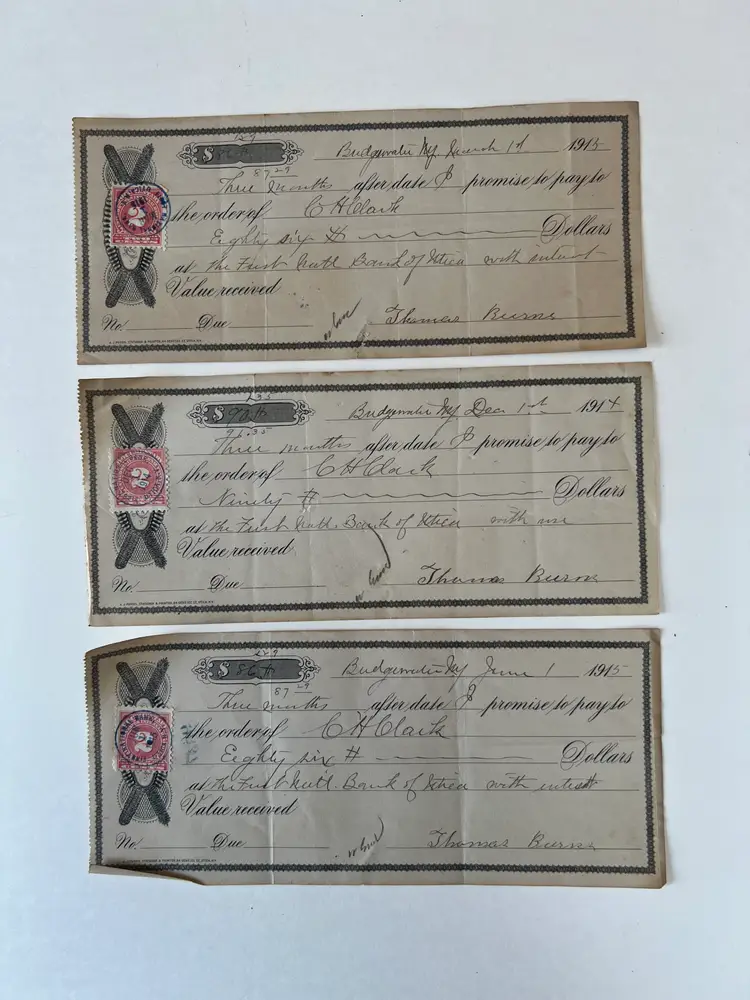 29
$ 86
Bridgewater NY. March 1st 1915
87 29
Three Months after date I promise to pay to
the order of C H Clark
Eighty six # Dollars
at the First Natl Bank of Utica with interest
Value received
No. Due Thomas Burns
135
$ 90 #
Bridgewater NY Dec 1st 1914
91.35
Three months after date I promise to pay to
the order of C H Clark
Ninety # Dollars
at the First Natl. Bank of Utica with
Value received
No. Due Thomas Burns
$ 86 #
Bridgewater NY June 1 1915
87 29
Three months after date I promise to pay to
the order of C H Clark
Eighty six # Dollars
at the First Natl. Bank of Utica with interest
Value received
No. Due Thomas Burns